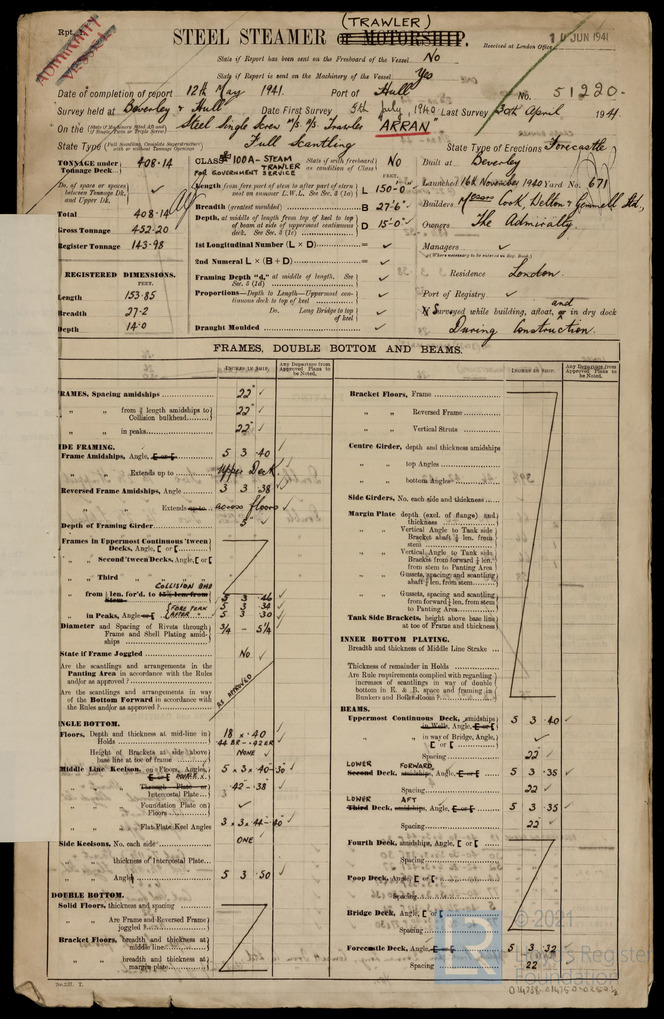 (TRAWLER)
Rpt. 1.
STEEL STEAMER or MOTORSHIP.
ADMIRALTY VESSEL
Received at London Office 10 JUN 1941
State if Report has been sent on the Freeboard of the Vessel No
State if Report is sent on the Machinery of the Vessel Yes
Date of completion of report 12th May 1941. Port of Hull No. 51220.
Survey held at Beverley & Hull Date First Survey 5th July, 1940 Last Survey 30th April 1941
On the (State if Machinery fitted Aft and if Single, Twin or Triple Screw) Steel Single Screw Trawler "ARRAN"
State Type (Full Scantling, Complete Superstructure with or without Tonnage Openings) Full Scantling State Type of Erections Forecastle
TONNAGE under Tonnage Deck 408.14
CLASS 100A - STEAM TRAWLER
FOR GOVERNMENT SERVICE
State if with freeboard as condition of Class No
Built at Beverley
Do. of space or spaces between Tonnage Deck and Upper Dk.
Length from fore part of stem to after part of stern post on summer L.W.L. See Sec. 3 (1a) L 150-0
Launched 16th November 1940 Yard No. 671
Total 408.14
Breadth (greatest moulded) B 27-6
Builders Messrs Cook, Welton & Gemmell Ltd.
Gross Tonnage 452.20
Depth, at middle of length from top of keel to top of beam at side of uppermost continuous deck. See Sec. 3 (1c) D 15-0
Owners The Admiralty.
Register Tonnage 143.98
1st Longitudinal Number (L × D) =
Managers
(Where necessary to be entered in Reg. Book.)
2nd Numeral L × (B + D) =
Residence London.
REGISTERED DIMENSIONS.
FEET.
Framing Depth "d," at middle of length. See Sec. 3 (1d)
Length 153.85
Proportions—Depth to Length—Uppermost continuous deck to top of keel
Port of Registry
Breadth 27.2
Do. Long Bridge to top of keel
Surveyed while building, afloat, or and in dry dock
Depth 14.0
Draught Moulded
During Construction.
FRAMES, DOUBLE BOTTOM AND BEAMS.
INCHES IN SHIP. Any Departure from Approved Plans to be Noted.
INCHES IN SHIP. Any Departure from Approved Plans to be Noted.
RAMES, Spacing amidships 22"
" " from ⅗ length amidships to Collision bulkhead 22"
" " in peaks 22"
IDE FRAMING.
Frame Amidships, Angle, [ or [ 5 3 .40
" " Extends up to Upper Deck
Reversed Frame Amidships, Angle 3 3 .38
" " Extends up to across floors
Depth of Framing Girder 5"
Frames in Uppermost Continuous 'tween Decks, Angle, [ or [
" " Second 'tween Decks, Angle, [ or [
" " Third "
COLLISION BHD
from ⅕ len. for'd. to 15% len. from Stem 5 3 .46
" " in Peaks, Angle or [ FORE PEAK 5 3 .34
AFTER " 5 3 .30
Diameter and Spacing of Rivets through Frame and Shell Plating amidships ¾ - 5¼
State if Frame Joggled No
Are the scantlings and arrangements in the Panting Area in accordance with the Rules and/or as approved?
Are the scantlings and arrangements in way of the Bottom Forward in accordance with the Rules and/or as approved?
AS APPROVED
INGLE BOTTOM.
Floors, Depth and thickness at mid-line in Holds 18 × .40
44 BR - .42 ER
Height of Brackets at side above base line at toe of frame NONE
Middle Line Keelson, on Floors, Angles, [ or [ DOUBLE 5 × 3 × .40-.30
" " Through Plate or Intercostal Plate .42 - .38
" " Foundation Plate on Floors
" " Flat Plate Keel Angles 3 × 3 × .44-.40
Side Keelsons, No. each side ONE
" " thickness of Intercostal Plate
" " Angle 5 3 .50
DOUBLE BOTTOM.
Solid Floors, thickness and spacing
" " Are Frame and Reversed Frame joggled?
Bracket Floors, breadth and thickness at middle line
" " breadth and thickness at margin plate
Bracket Floors, Frame
" " Reversed Frame
" " Vertical Struts
Centre Girder, depth and thickness amidships
" " top Angles
" " bottom Angles
Side Girders, No. each side and thickness
Margin Plate depth (excl. of flange) and thickness
" " Vertical Angle to Tank side Bracket abaft ¼ len. from stem
" " Vertical Angle to Tank side Bracket from forward ¼ len. from stem to Panting Area
" " Gussets, spacing and scantling abaft ¼ len. from stem
" " Gussets, spacing and scantling from forward ¼ len. from stem to Panting Area
Tank Side Brackets, height above base line at toe of Frame and thickness
INNER BOTTOM PLATING.
Breadth and thickness of Middle Line Strake
Thickness of remainder in Holds
Are Rule requirements complied with regarding increases of scantlings in way of double bottom in E. & B. space and framing in Bunkers and Boiler Room?
BEAMS.
Uppermost Continuous Deck, amidships in Wells, Angle, [ or [ 5 3 .40
" " in way of Bridge, Angle, [ or [
Spacing 22
LOWER FORWARD
Second Deck, amidships, Angle, [ or [ 5 3 .35
Spacing 22
LOWER AFT
Third Deck, amidships, Angle, [ or [ 5 3 .35
Spacing 22
Fourth Deck, amidships, Angle, [ or [
Spacing
Poop Deck, Angle, [ or [
Spacing
Bridge Deck, Angle, [ or [
Spacing
Forecastle Deck, Angle, [ or [ 5 3 .32
Spacing 22
© 2021
Lloyd's Register
Foundation